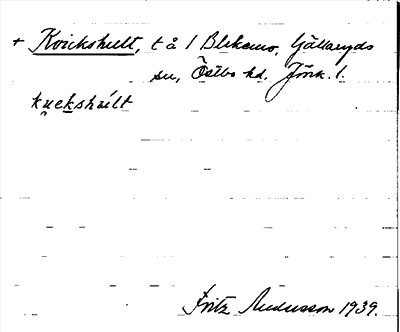 + Kvickshult, t å 1 Blekemo, Gällaryds
sn, Östbo hd, Jönk. l.
kuckshult
Fritz Andersson 1939.